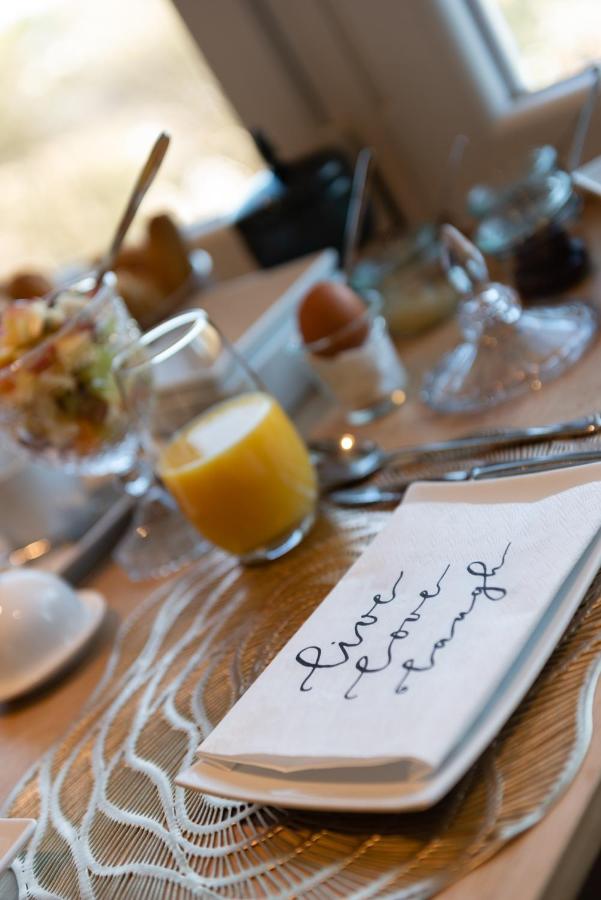 live
love
laugh